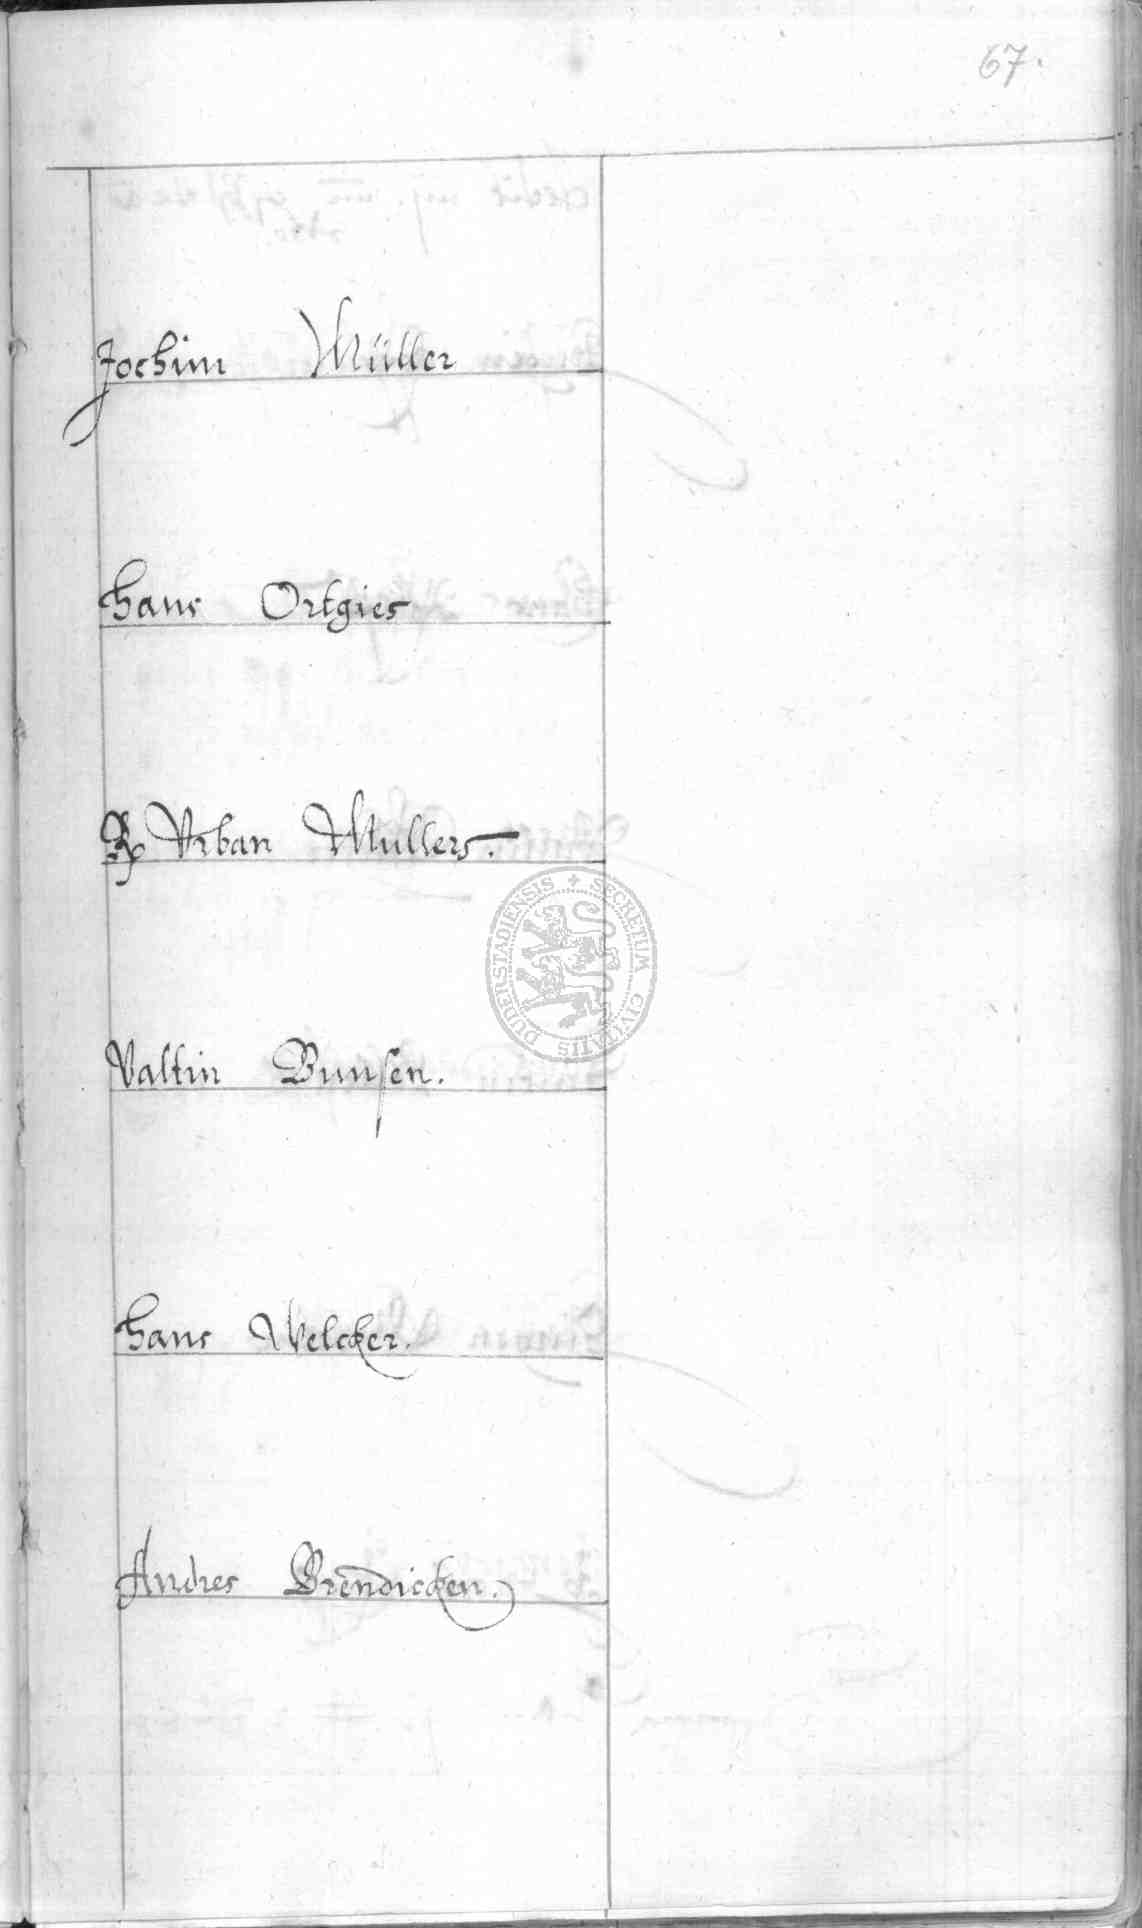 67.
Jochim Müller
Hans Ortgies
R Urban Mullers.
Valtin Bunsen.
Hans Welcker.
Andres Brendicken.
SECRETUM CIVITATIS DUDERSTADIENSIS